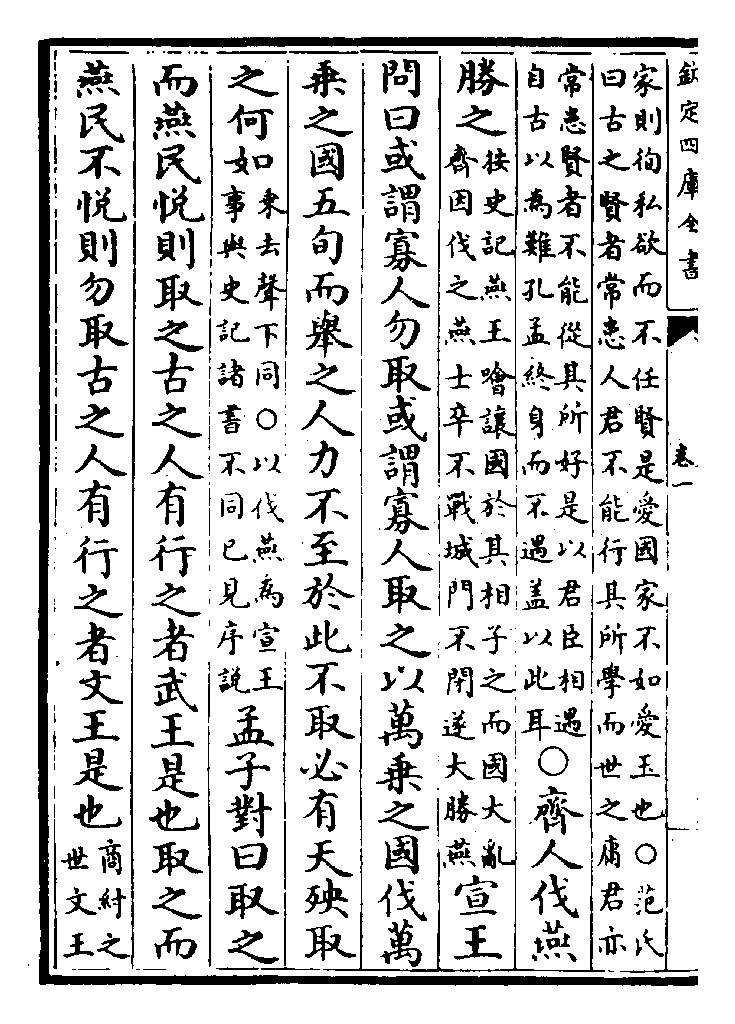 欽定四庫全書 卷一
家則徇私欲而不任賢是愛國家不如愛玉也○范氏
曰古之賢者常患人君不能行其所學而世之庸君亦
常患賢者不能從其所好是以君臣相遇
自古以為難孔孟終身而不遇盖以此耳
○齊人伐燕
勝之
按史記燕王噲讓國於其相子之而國大亂
齊因伐之燕士卒不戰城門不閉遂大勝燕
宣王
問曰或謂寡人勿取或謂寡人取之以萬乘之國伐萬
乘之國五旬而舉之人力不至於此不取必有天殃取
之何如
乘去聲下同○以伐燕為宣王
事與史記諸書不同已見序說
孟子對曰取之
而燕民悅則取之古之人有行之者武王是也取之而
燕民不悅則勿取古之人有行之者文王是也
商紂之
世文王